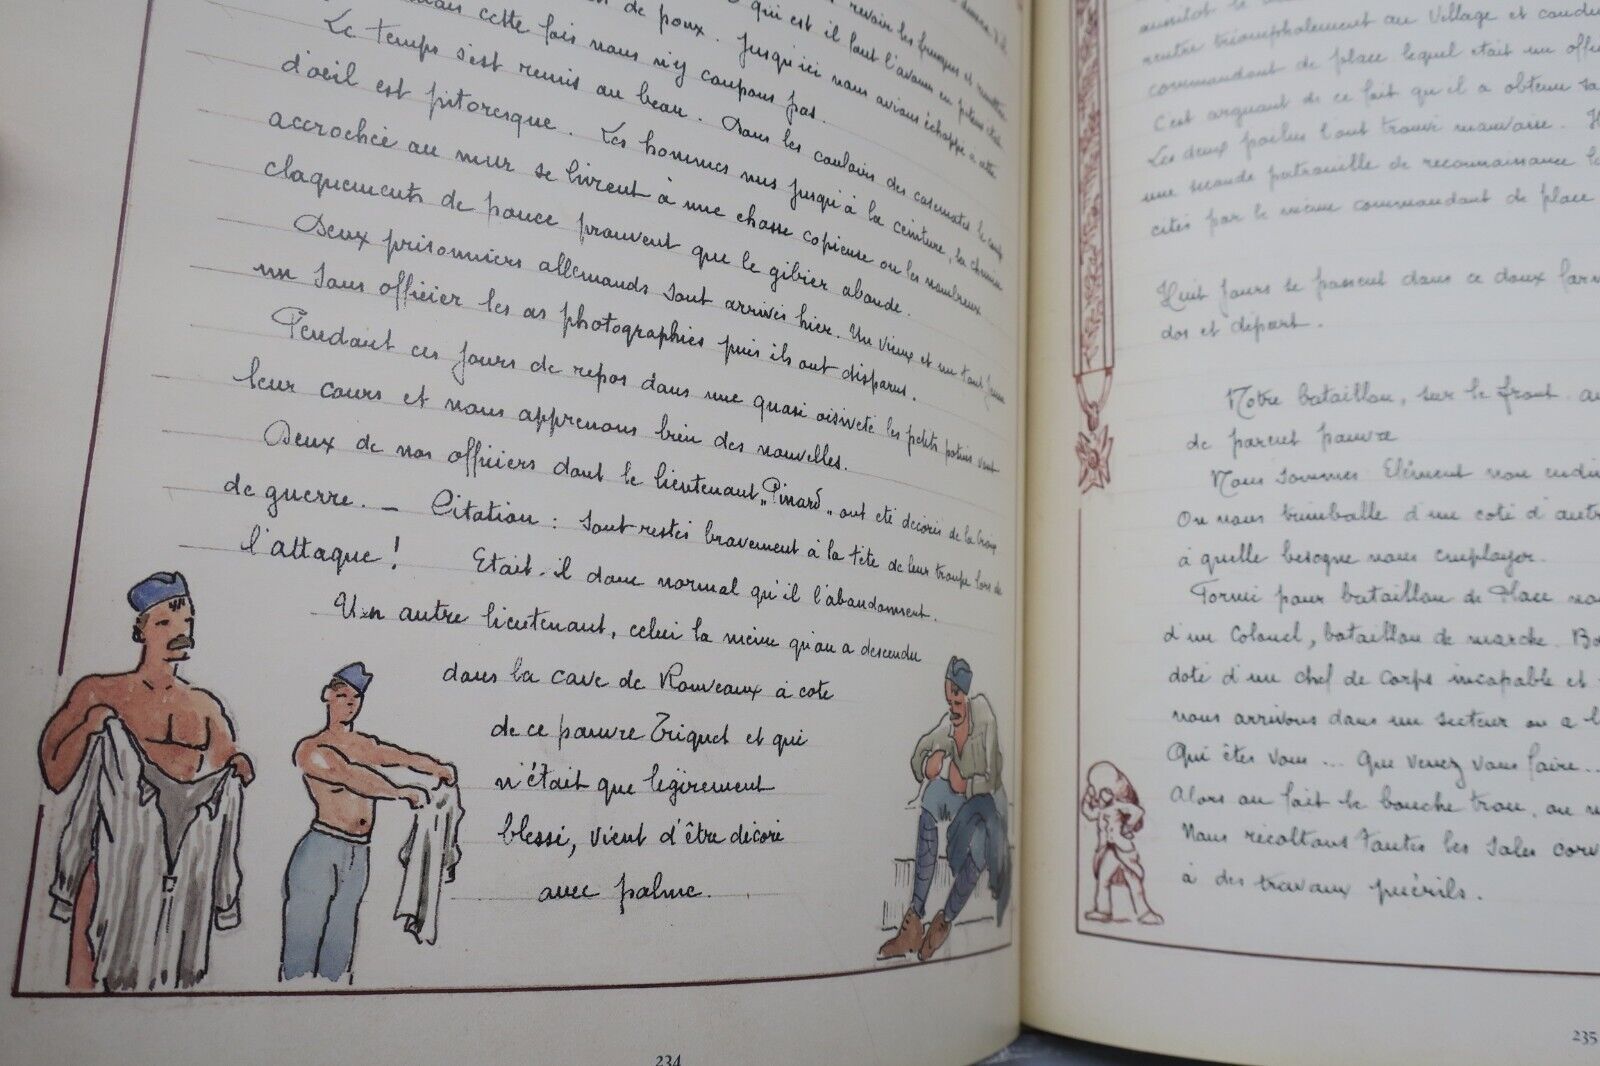 revoir les
de poux. Jusqu'ici nous avions échappé à cette
mais cette fois nous n'y coupons pas.
Le temps s'est remis au beau. Dans les couloirs des casemates le coup
d'oeil est pitoresque. Les hommes nus jusqu'à la ceinture, la chemise
accrochée au mur se livrent à une chasse copieuse ou les nombreux
claquements de pouce prouvent que le gibier abonde.
Deux prisonniers allemands sont arrivés hier. Un vieux et un tout jeune
un sous officier les as photographiés puis ils ont disparus.
Pendant ces jours de repos dans une quasi oisiveté les petits potins vont
leur cours et nous apprenons bien des nouvelles.
Deux de nos officiers dont le lieutenant "Pinard" ont été décorés de la Croix
de guerre. _ Citation : sont restés bravement à la tête de leur troupe lors de
l'attaque ! Etait-il donc normal qu'il l'abandonnent.
Un autre lieutenant, celui la même qu'on a descendu
dans la cave de Rouvroux à coté
de ce pauvre Triquet et qui
n'était que légèrement
blessé, vient d'être décoré
avec palme.
234
aussitot le
rentre triomphalement au village et
commandant de place lequel était un
C'est arguant de ce fait qu'il a obtenu sa
Les deux poilus l'ont trouvé mauvaise.
une seconde patrouille de reconnaissance
cités par le même commandant de place
Huit jours se passent dans ce doux
dos et départ.
Notre bataillon, sur le front.
de parent pauvre
Nous sommes Elément non
On nous trimballe d'un coté d'
à quelle besogne nous employer.
Tormé pour bataillon de Place
d'un Colonel, bataillon de marche.
doté d'un chef de Corps incapable et
nous arrivons dans un secteur ou
Qui êtes vous ... Que venez vous faire...
Alors on fait le bouche trou,
Nous récoltons toutes les sales
à des travaux puérils.
235